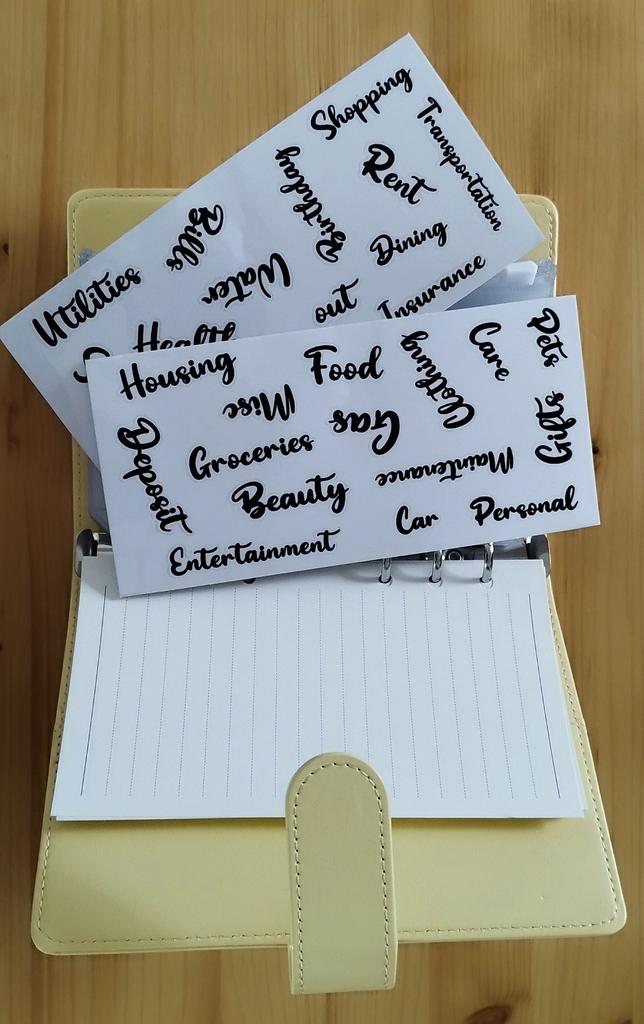 Shopping
Transportation
Rent
Birthday
Bills
Dining
out
Water
Insurance
Utilities
Health
Housing
Food
Clothing
Care
Pets
Misc
Gas
Gifts
Deposit
Groceries
Maintenance
Beauty
Car
Personal
Entertainment